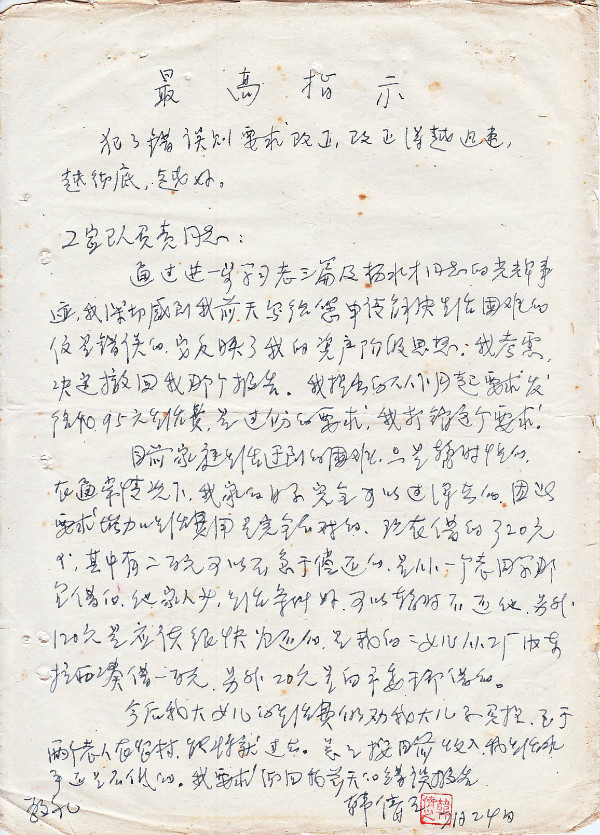 最高指示
犯了错误则要求改正，改正得越迅速，
越彻底，越好。
工宣队负责同志：
通过进一步学习老三篇及杨水才同志的光辉事
迹，我深切感到我前天写给您申请解决生活困难的
信是错误的，它反映了我的资产阶级思想；我考虑，
决定撤回我那个报告。我提出的从八月起要求发
给我95元生活费是过份的要求，我打消这个要求。
目前家庭生活遇到的困难，只是暂时性的，
在通常情况下，我家的日子完全可以过得去的，因此
要求增加生活费用是完全不对的。现在借的320元
中，其中有二百元可以不急于偿还的，是从一个老同学那
里借的，他家人少，生活条件好，可以暂时不还他，另外
120元是应该很快归还的，是我的二女儿从工厂
借一百元，另外20元是向干部借的。
今后我大女儿的生活费仍劝我大儿子负担，至于
两个老人在农村，能将就过去。总之按目前收入，我生活水
平还是不低的。我要求撤回前天的错误报告
敬礼
韩
24日